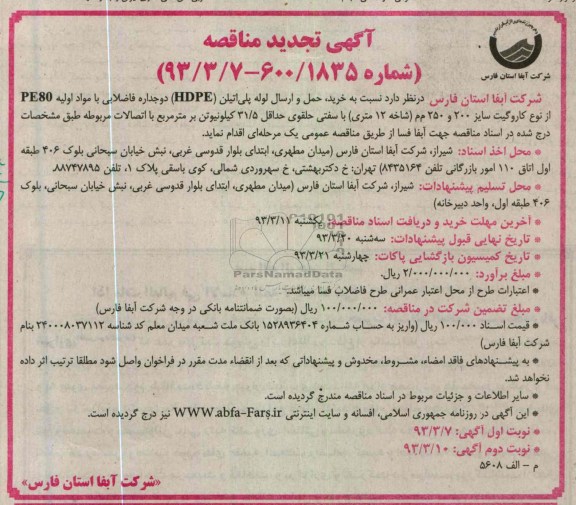 آگهی تجدید مناقصه
(شماره ۱۸۳۵/۶۰۰-۹۳/۳/۷)
شرکت آبفا استان فارس
شرکت آبفا استان فارس درنظر دارد نسبت به خرید، حمل و ارسال لوله پلی‌اتیلن (HDPE) دوجداره فاضلابی با مواد اولیه PE80
از نوع کاروگیت سایز ۲۰۰ و ۲۵۰ م‌م (شاخه ۱۲ متری) با سفتی حلقوی حداقل ۳۱/۵ کیلونیوتن بر مترمربع با اتصالات مربوطه طبق مشخصات
درج شده در اسناد مناقصه جهت آبفا فسا از طریق مناقصه عمومی یک مرحله‌ای اقدام نماید.
* محل اخذ اسناد: شیراز، شرکت آبفا استان فارس (میدان مطهری، ابتدای بلوار قدوسی غربی، نبش خیابان سبحانی بلوک ۴۰۶ طبقه
اول اتاق ۱۱۰ امور بازرگانی تلفن ۸۴۳۵۱۶۴) تهران: خ دکتربهشتی، خ سهروردی شمالی، کوی باسقی پلاک ۱، تلفن ۸۸۷۴۷۸۹۵.
* محل تسلیم پیشنهادات: شیراز، شرکت آبفا استان فارس (میدان مطهری، ابتدای بلوار قدوسی غربی، نبش خیابان سبحانی، بلوک
۴۰۶ طبقه اول، واحد دبیرخانه)
* آخرین مهلت خرید و دریافت اسناد مناقصه: یکشنبه ۹۳/۳/۱۱
* تاریخ نهایی قبول پیشنهادات: سه‌شنبه ۹۳/۳/۲۰
* تاریخ کمیسیون بازگشایی پاکات: چهارشنبه ۹۳/۳/۲۱
ParsNamadData
* مبلغ برآورد: ۲/۰۰۰/۰۰۰/۰۰۰ ریال.
* اعتبارات طرح از محل اعتبار عمرانی طرح فاضلاب فسا میباشد.
* مبلغ تضمین شرکت در مناقصه: ۱۰۰/۰۰۰/۰۰۰ ریال (بصورت ضمانتنامه بانکی در وجه شرکت آبفا فارس)
* قیمت اسناد ۱۰۰/۰۰۰ ریال (واریز به حساب شماره ۱۵۲۸۹۳۶۴۰۴ بانک ملت شعبه میدان معلم کد شناسه ۲۴۰۰۰۸۰۳۷۱۱۲ بنام
شرکت آبفا فارس)
* به پیشنهادهای فاقد امضاء، مشروط، مخدوش و پیشنهاداتی که بعد از انقضاء مدت مقرر در فراخوان واصل شود مطلقا ترتیب اثر داده
نخواهد شد.
* سایر اطلاعات و جزئیات مربوط در اسناد مناقصه مندرج گردیده است.
* این آگهی در روزنامه جمهوری اسلامی، افسانه و سایت اینترنتی WWW.abfa-Fars.ir نیز درج گردیده است.
* نوبت اول آگهی: ۹۳/۳/۷
* نوبت دوم آگهی: ۹۳/۳/۱۰
م - الف ۵۶۰۸
«شرکت آبفا استان فارس»